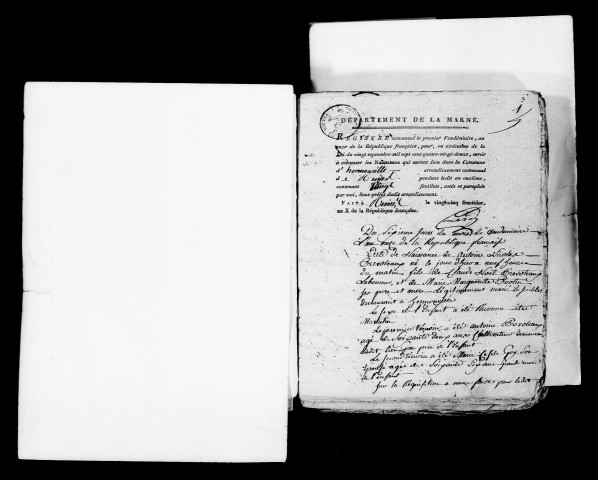 1
DÉPARTEMENT DE LA MARNE.
REGISTRE commencé le premier Vendémiaire, an
onze de la République française, pour, en exécution de la
Loi du vingt septembre mil sept cent quatre-vingt-douze, servir
à constater les Naissances qui auront lieu dans la Commune
d'hermonville arrondissement communal
de Reims pendant ledit an onzième,
contenant feuillets, cotés et paraphés
par moi, Sous-préfet dudit arrondissement.
FAIT à Reims le vingtcinq fructidor,
an X de la République française.
Du Septieme jour du mois de Vendemiaire
l'an onze de la Republique française
Acte de Naissance de Antoine Nicolas
né le jour d'hier a neuf heures
du matin fils de Claude Noël
Laboureur, et de Marie Marguerite
ses pere et mere Légitimement mariés
demeurant a hermonville
Le sexe de l'Enfant a été Reconnu être
Masculin
Le premier témoin a été antoine
agé de Soixante deux ans Cultivateur
de l'Enfant
Le second témoin a été Marie
agée de Soixante
de l'enfant
Sur la Requisition a nous faite par